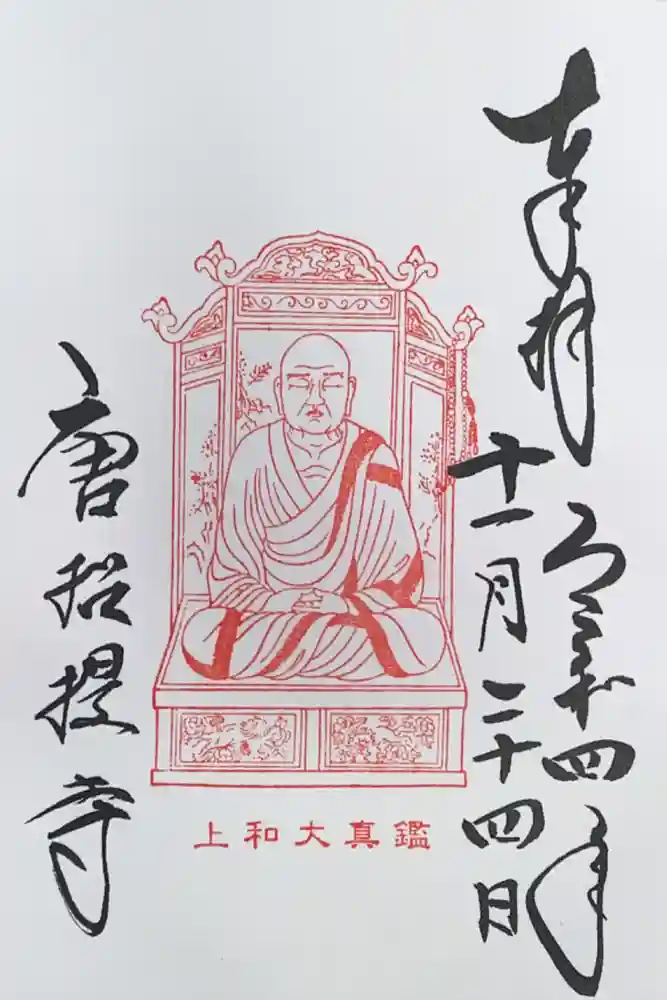 奉拝
令和四年
十一月二十四日
上和大真鑑
唐招提寺